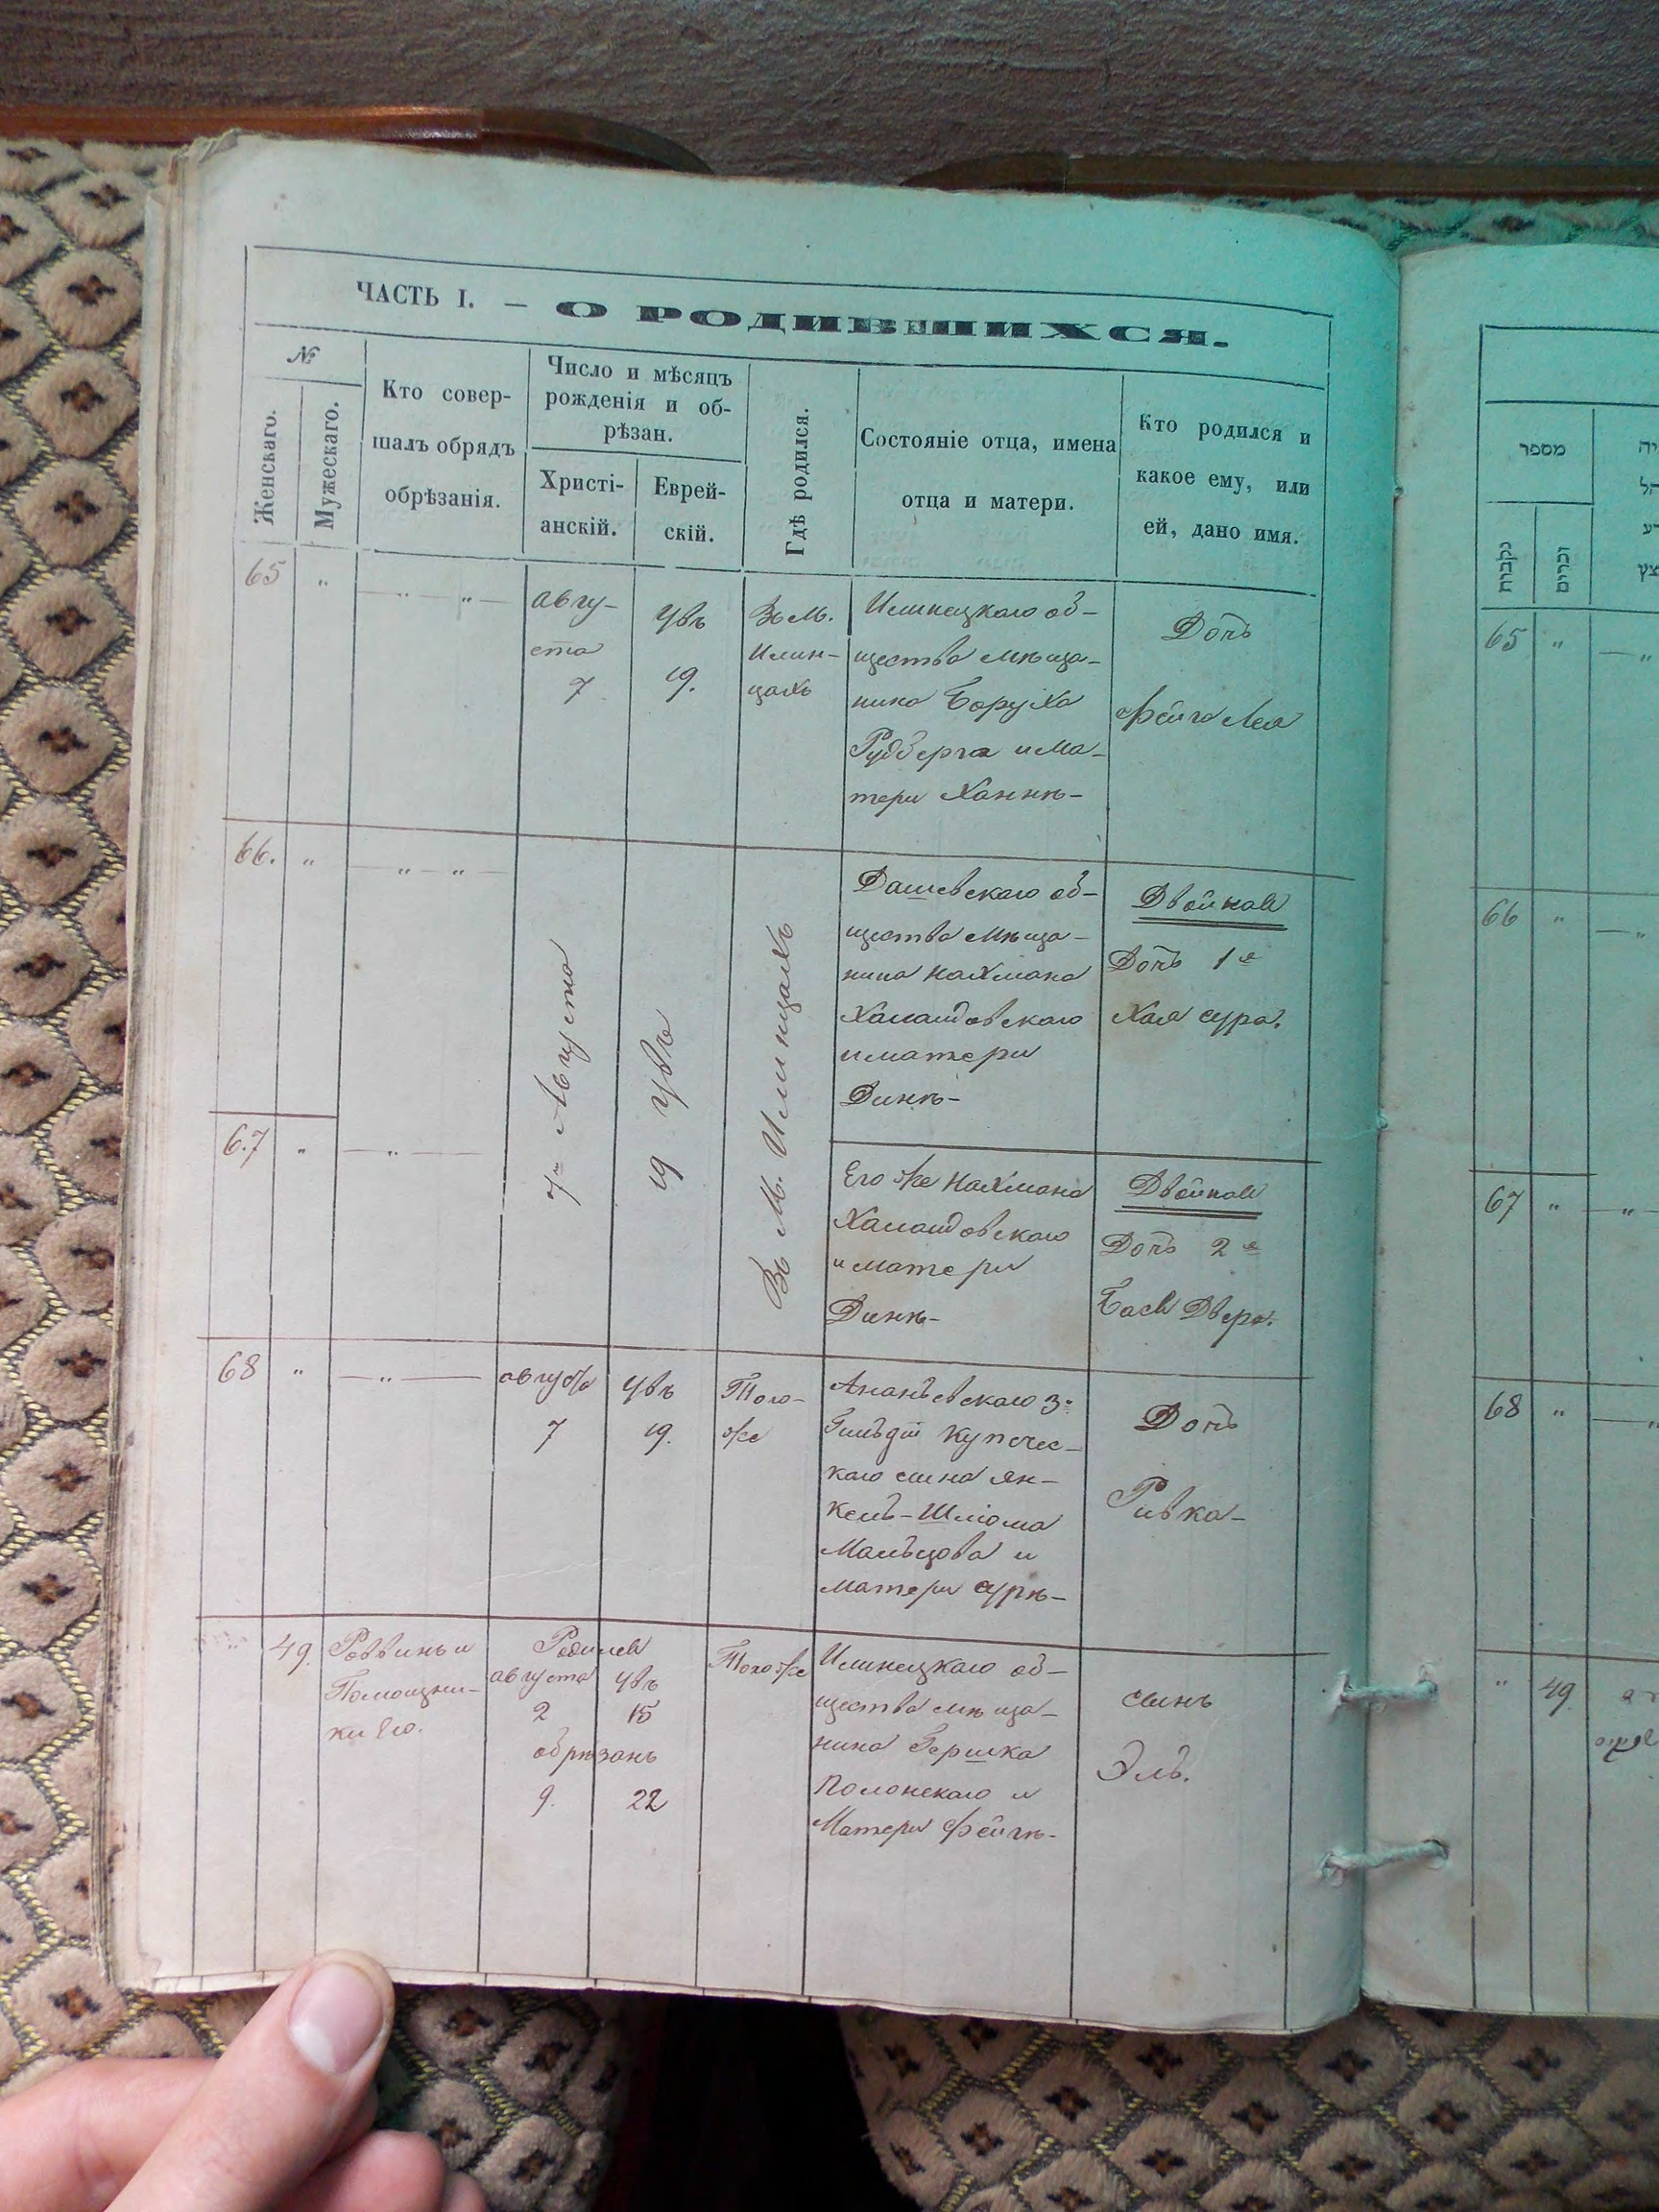 ЧАСТЬ I. — О РОДИВШИХСЯ.
№
Женскаго.
Мужескаго.
Кто совер-
шалъ обрядъ
обрѣзанія.
Число и мѣсяцъ
рожденія и об-
рѣзан.
Христі-
анскій.
Еврей-
скій.
Гдѣ родился.
Состояніе отца, имена
отца и матери.
Кто родился и
какое ему, или
ей, дано имя.
65
"
— " — " —
Авгу-
ста
7
Увъ
19.
Въ М.
Илин-
цахъ
Илинецкаго об-
щества мѣща-
нина Боруха
Рудберга и ма-
тери Ханнѣ-
Дочь
Фейга Лея
66.
"
— " — " —
7го Августа
19 Увъ
Въ М. Илинцахъ
Дашевскаго об-
щества мѣща-
нина Нахмана
и матери
Динѣ-
Двойная
Дочь 1я
Хая Сура.
67
"
— " —
Его же Нахмана
и матери
Динѣ-
Двойная
Дочь 2я
Бася Двера.
68
"
— " —
Августа
7
Увъ
19.
Того-
же
Ананьевскаго 3й
Гильдіи купечес-
каго сына Ян-
кель-Шлiома
Мальцова и
матери Сурѣ-
Дочь
Ривка-
49.
Раввинъ и
Помощни-
ки Его.
Родился
августа Увъ
2 15
обрѣзанъ
9. 22
Того же
Илинецкаго об-
щества мѣща-
нина Гершка
Полонскаго и
Матери Фейгѣ-
сынъ
Эль.
מספר
נקבות
זכרים
65 "
66 "
67 "
68 "
" 49.